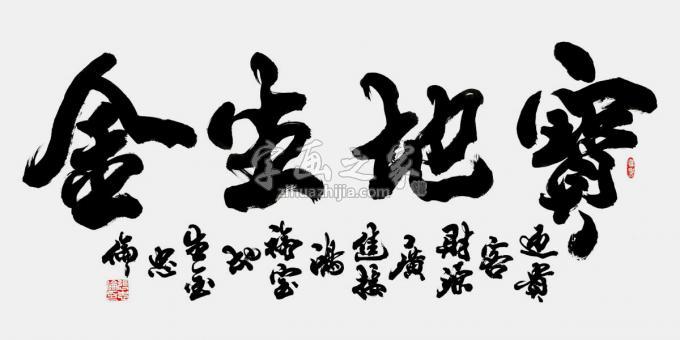 寶地生金
迎貴客財源廣進接鴻福寶地生金忠倫
字画之家
zihuazhijia.com